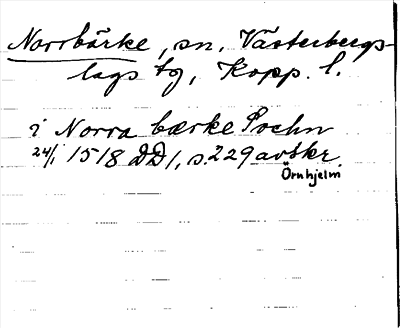 Norrbärke, sn, Västerbergs-
lags tg, Kopp. l.
i Norra bærke Sochn
24/1 1518 DD1, s. 229 avskr.
Örnhjelm